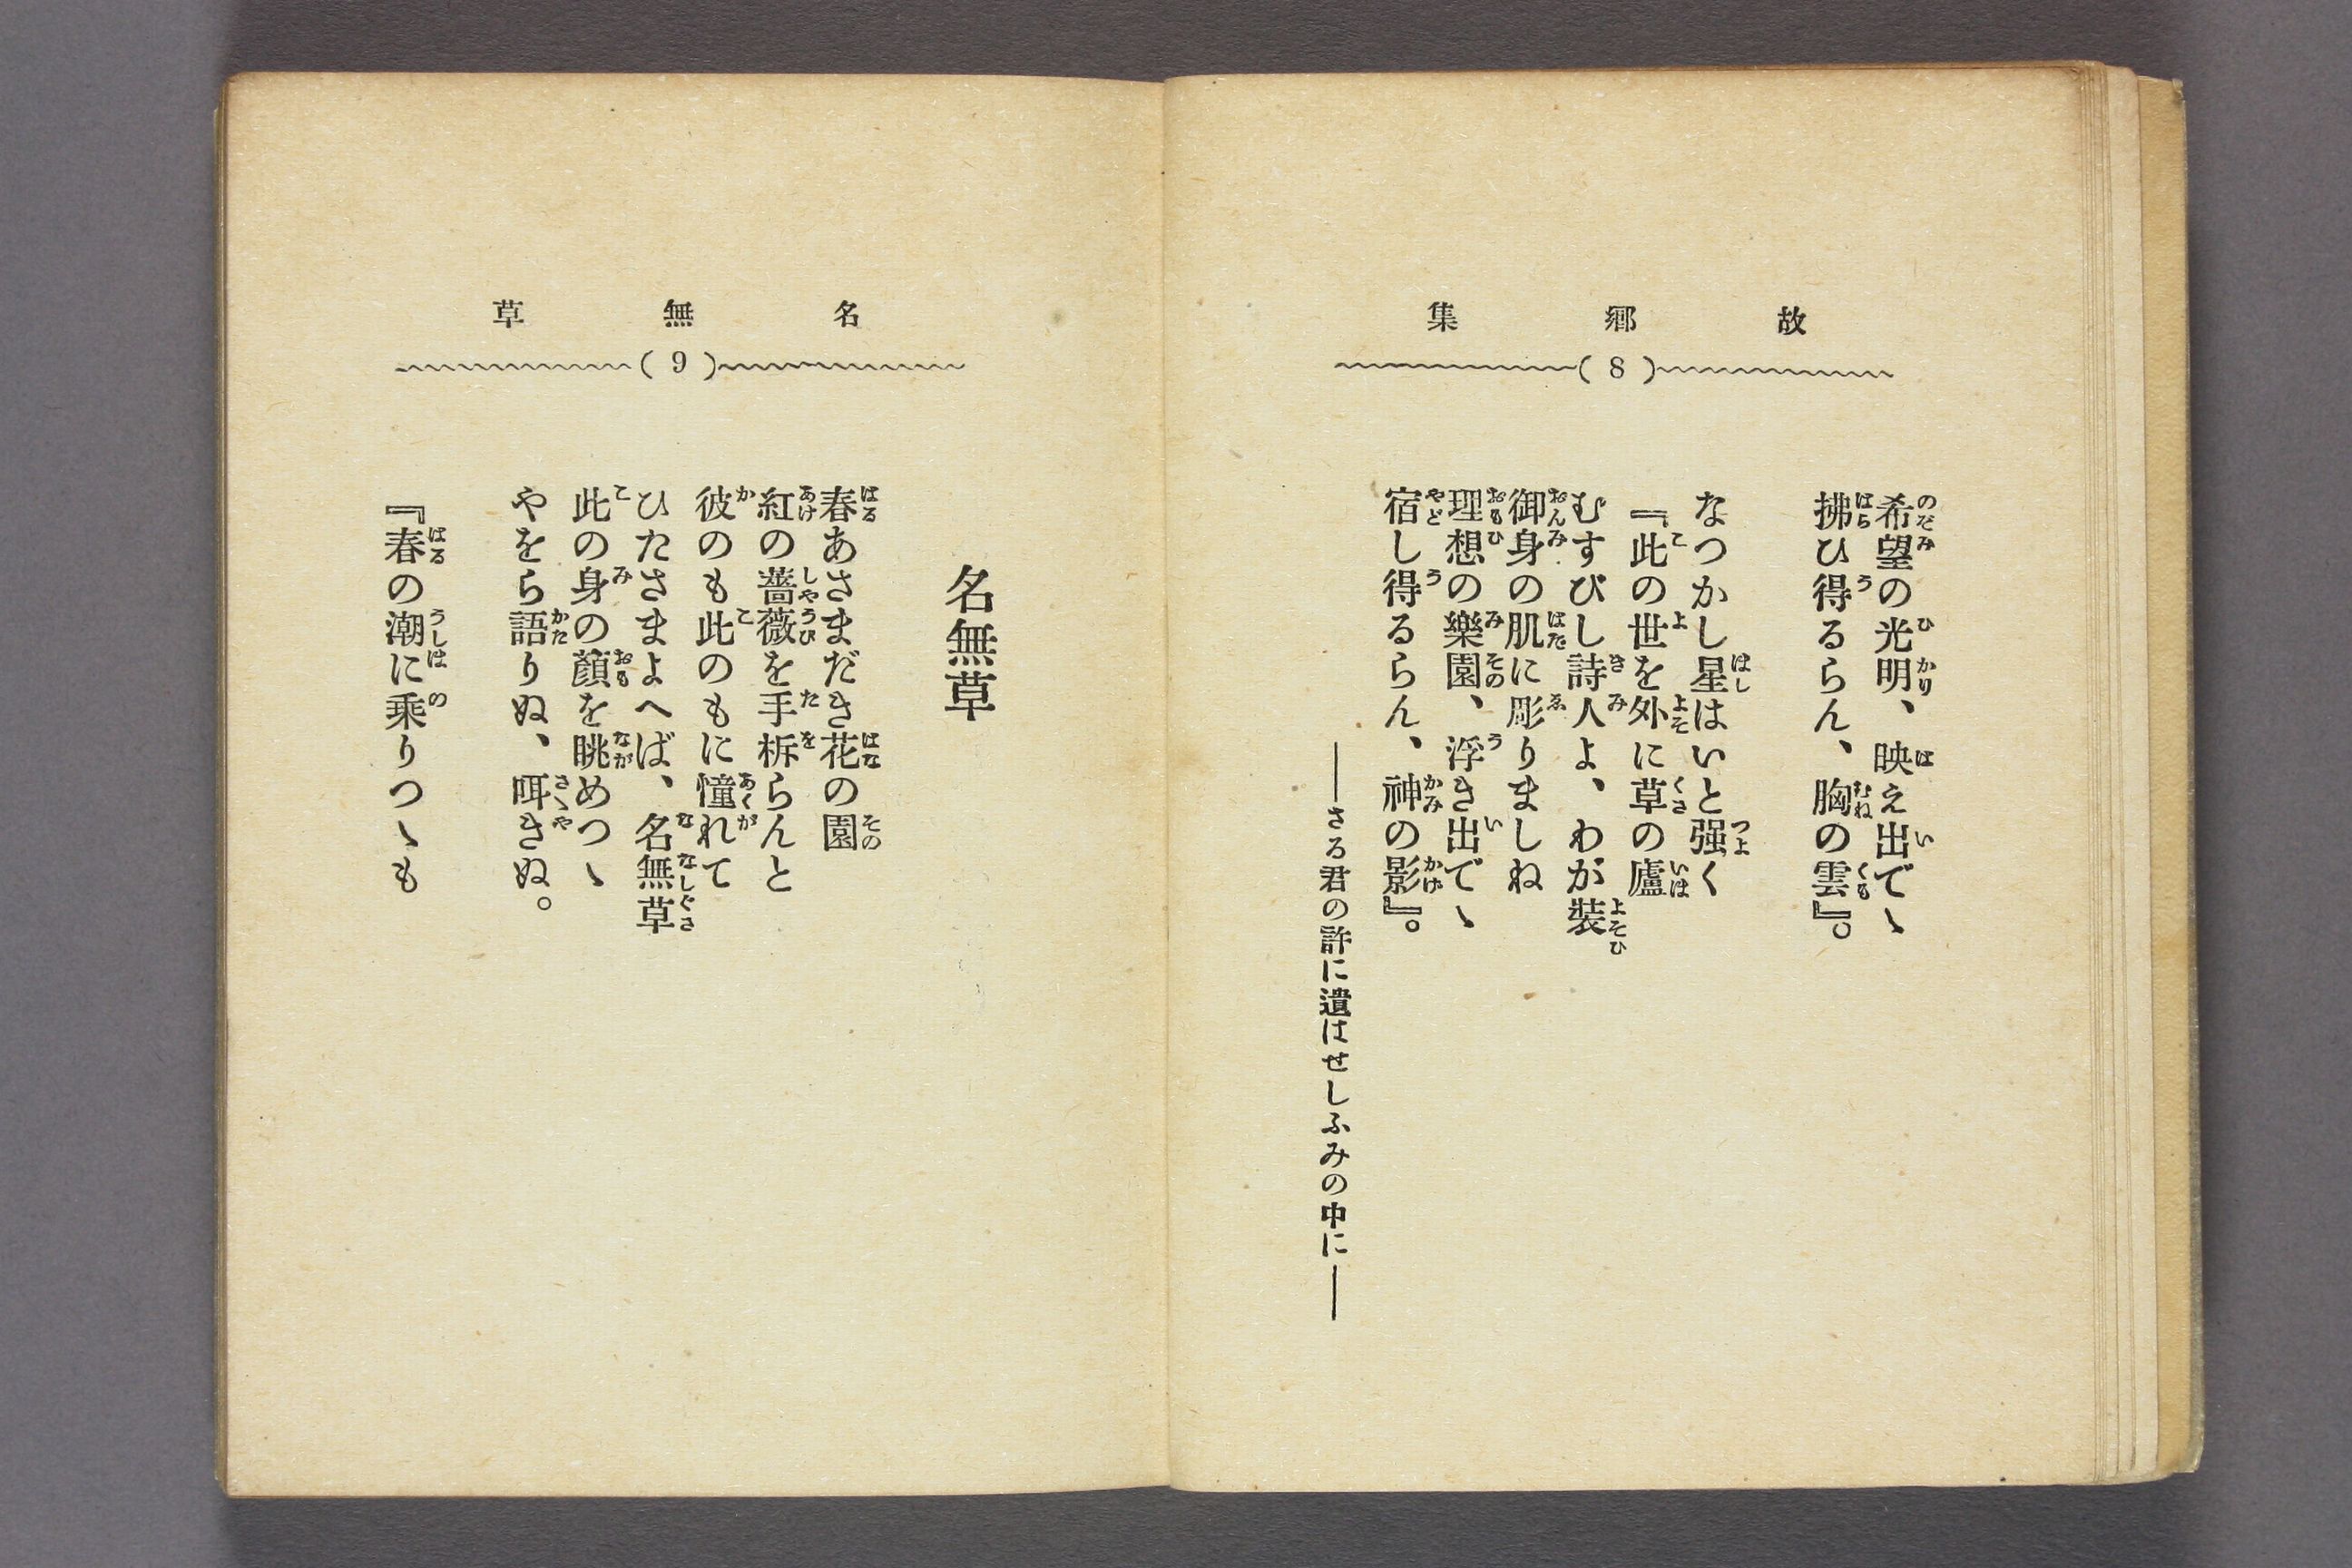 故郷集
(8)
希望の光明、映え出でゝ
拂ひ得るらん、胸の雲』。
なつかし星はいと强く
『此の世を外に草の廬
むすびし詩人よ、わが裝
御身の肌に彫りましね
理想の樂園、浮き出でゝ
宿し得るらん、神の影』。
――さる君の許に遺はせしふみの中に――
名無草
(9)
名無草
春あさまだき花の園
紅の薔薇を手柝らんと
彼のも此のもに憧れて
ひたさまよへば、名無草
此の身の顏を眺めつゝ
やをら語りぬ、咡きぬ。
『春の潮に乘りつゝも